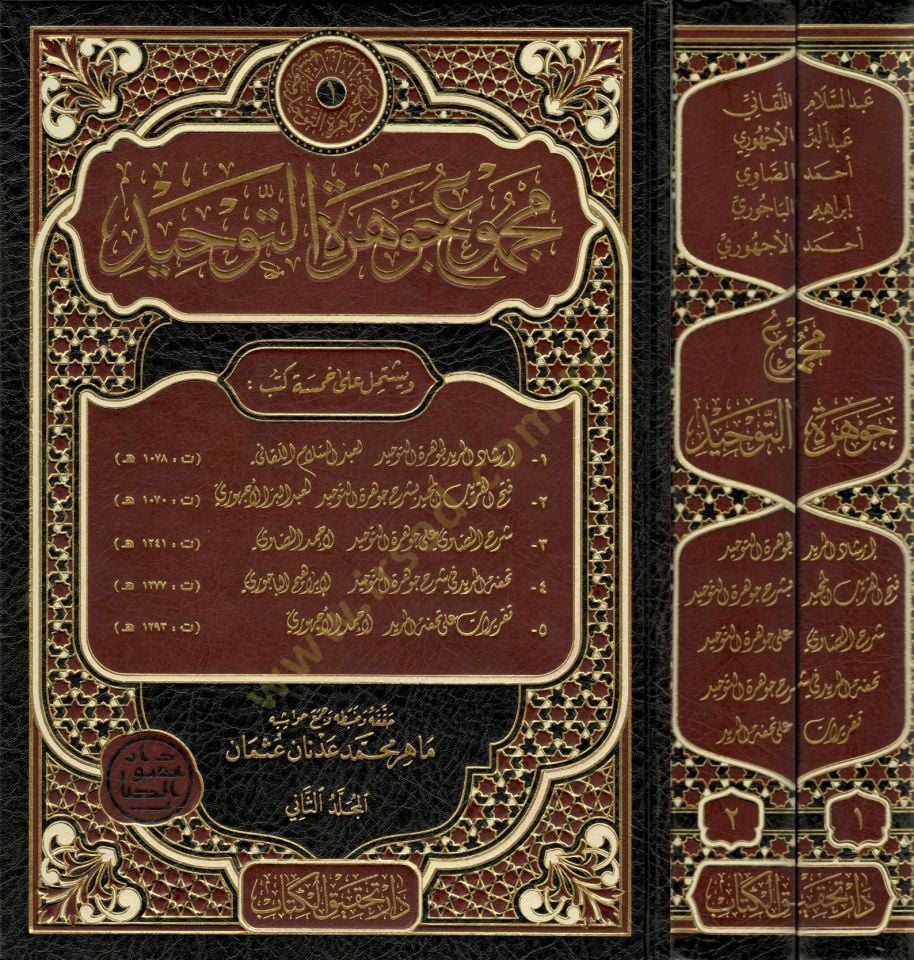 ١
مجموع جوهرة التوحيد
ويشتمل على خمسة كتب :
١- إرشاد المريد لجوهرة التوحيد لعبد السلام اللقاني. (ت : ١٠٧٨ هـ)
٢- فتح القريب المجيد بشرح جوهرة التوحيد لعبد البر الأجهوري (ت : ١٠٧٠ هـ)
٣- شرح الصاوي على جوهرة التوحيد لأحمد الصاوي. (ت : ١٢٤١ هـ)
٤- تحفة المريد في شرح جوهرة التوحيد لإبراهيم الباجوري. (ت : ١٢٧٧ هـ)
٥- تقريرات على تحفة المريد لأحمد الأجهوري (ت : ١٢٩٣ هـ)
حققه وضبطه وصنع حواشيه
ماهر محمد عدنان عثمان
المجلد الثاني
دار تحقيق الكتاب
عبد السلام اللقاني
عبد البر الأجهوري
أحمد الصاوي
إبراهيم الباجوري
أحمد الأجهوري
مجموع
جوهرة التوحيد
إرشاد المريد لجوهرة التوحيد
فتح القريب المجيد بشرح جوهرة التوحيد
شرح الصاوي على جوهرة التوحيد
تحفة المريد في شرح جوهرة التوحيد
تقريرات على تحفة المريد
١ ٢
دار تحقيق الكتاب